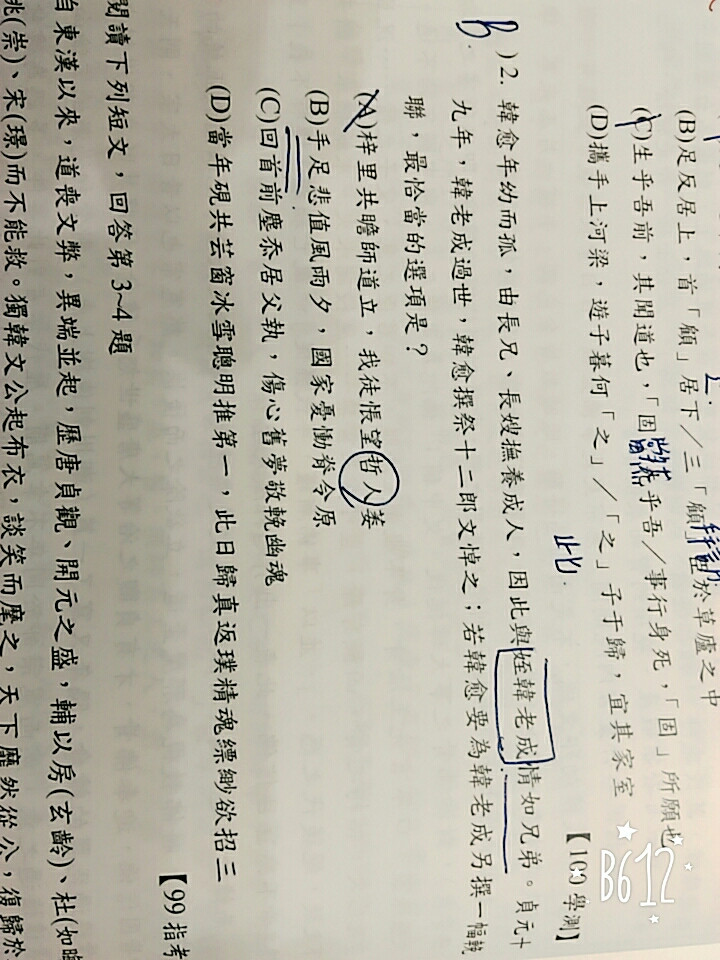 (B)足反居上，首「顧」居下／三「顧」臣於草廬之中
(C)生乎吾前，其聞道也，「固」先乎吾／事行身死，「固」所願也
(D)攜手上河梁，遊子暮何「之」／「之」子于歸，宜其家室
【109學測】
此
B
)2. 韓愈年幼而孤，由長兄、長嫂撫養成人，因此與姪韓老成情如兄弟。貞元十
九年，韓老成過世，韓愈撰祭十二郎文悼之；若韓愈要為韓老成另撰一幅輓
聯，最恰當的選項是？
(A)梓里共瞻師道立，我徒悵望哲人萎
(B)手足悲值風雨夕，國家憂慟脊令原
(C)回首前塵忝居父執，傷心舊夢敬輓幽魂
(D)當年硯共芸窗冰雪聰明推第一，此日歸真返璞精魂縹緲欲招三
【99指考
閱讀下列短文，回答第3~4題
自東漢以來，道喪文弊，異端並起，歷唐貞觀、開元之盛，輔以房(玄齡)、杜(如晦
姚(崇)、宋(璟)而不能救。獨韓文公起布衣，談笑而麾之，天下靡然從公，復歸於
B612